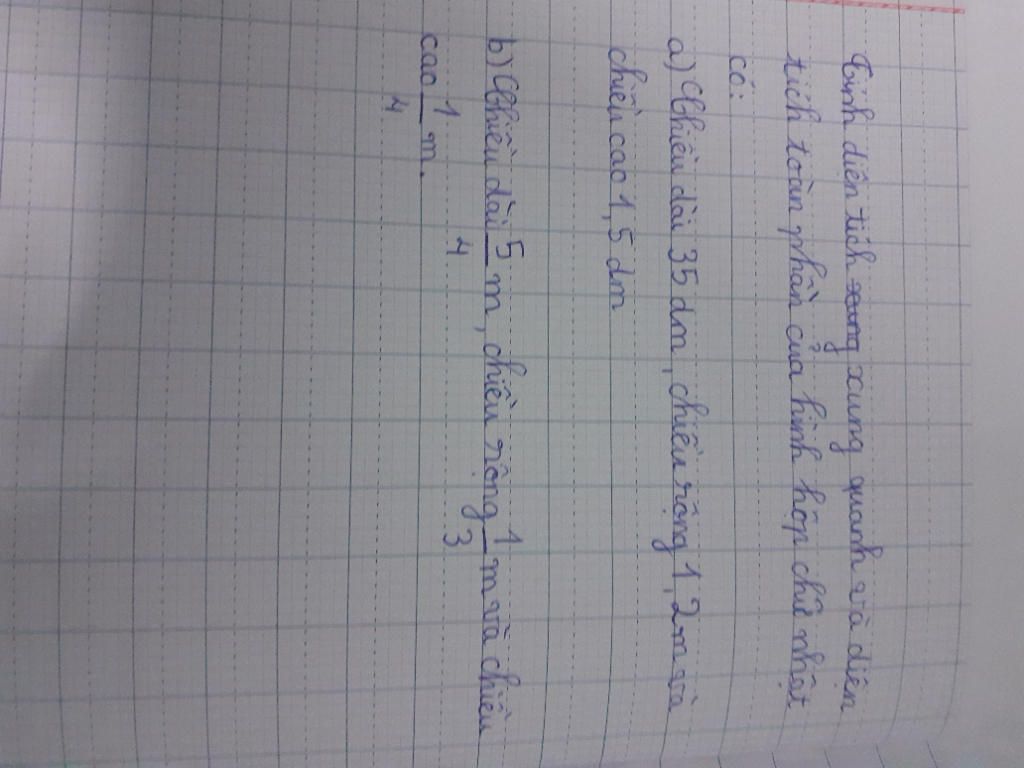 Tính diện tích xung xung quanh và diện
tích toàn phần của hình hộp chữ nhật
có:
a) Chiều dài 35 dm, chiều rộng 1,2m và
chiều cao 1,5 dm
b) Chiều dài 5/4 m, chiều rộng 1/3 m và chiều
cao 1/4 m.